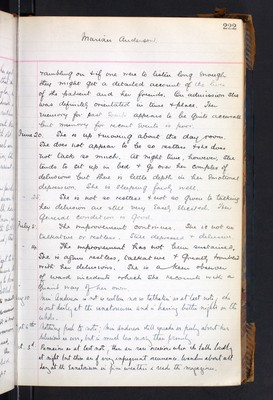 222
Marian Anderson
rambling on & if one were to listen long enough
they might get a detailed account of the
of the patient and her friends. On admission she
was definitely orientated in time & place. Her
memory for past events appears to be quite accurate
but memory for recent events is poor.
June 20. She is up & moving about the day room
She does not appear to be so restless & she does
not talk so much. At night time, however, she
tends to sit up in bed & go on her complex of
delusions but there is little depth in her emotional
depression. She is sleeping fairly well.
She is not so restless & not so given to talking
her delusions are still very
General condition is good.
July 5. The improvement continues. She is not so
talkative or restless. Still depressed & delusive.
The improvement has not been sustained.
She is often restless, talkative & greatly troubled
with her delusions. She is a keen observer
of ward incidents which she recounts with a
quaint way of her own.
Mrs Anderson is not so restless nor so talkative as at last note, she
is out daily, at the sanatorium and is having better nights on the
whole.
Nothing fresh to note, Mrs Anderson still speaks as freely about her
delusions as ever, but is much less noisy than formerly.
Remains as at last note, there are rare occasions when she talks loudly
at night but these are of very infrequent occurrence. Wanders about all
day at the Sanatorium in fine weather & reads the magazines.